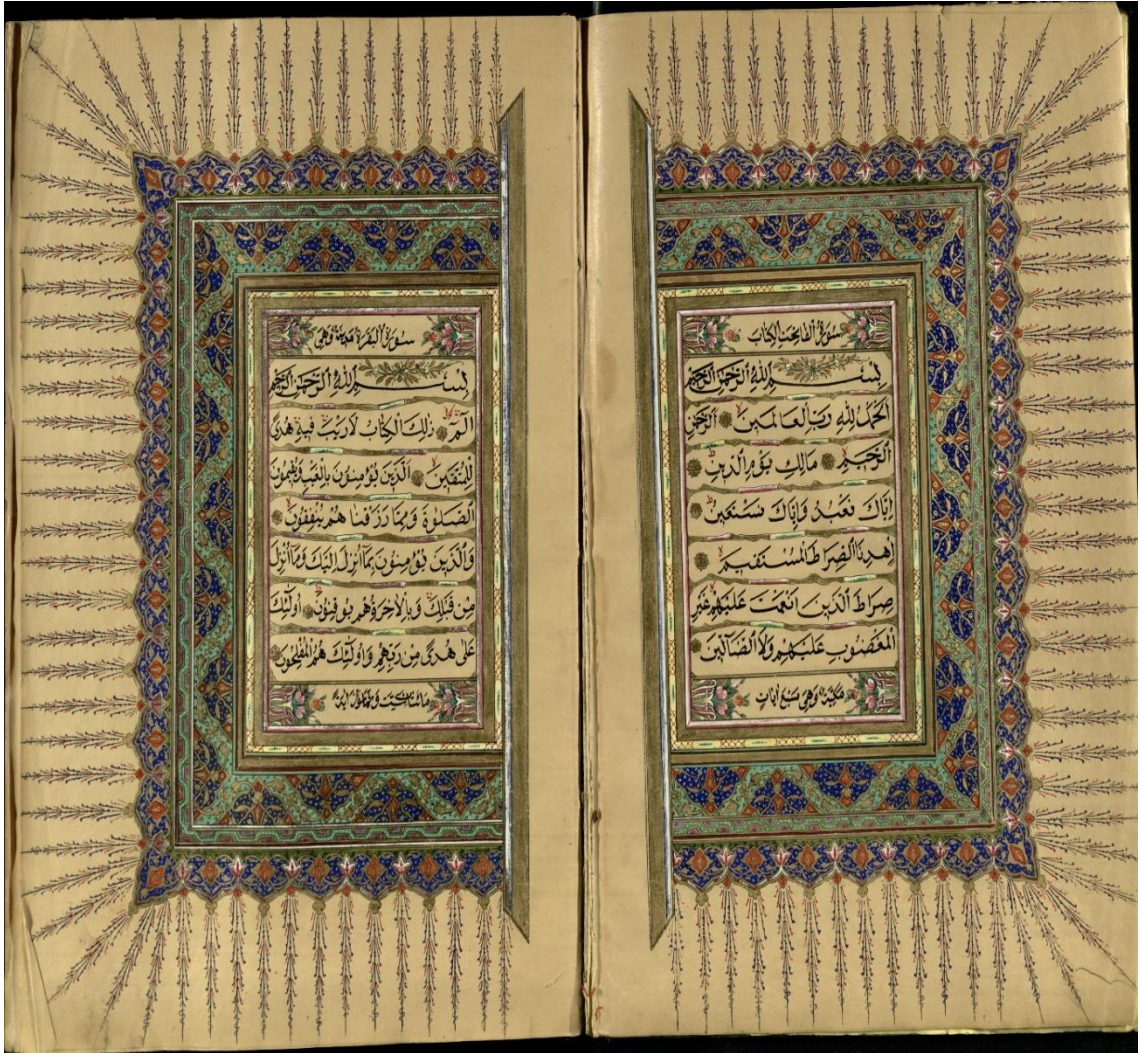 سورة الفاتحة الكتاب
بِسْمِ اللّٰهِ الرَّحْمٰنِ الرَّحِيمِ
اَلْحَمْدُ لِلّٰهِ رَبِّ الْعَالَمِينَ ۙ اَلرَّحْمٰنِ
الرَّحِيمِ ۙ مَالِكِ يَوْمِ الدِّينِ ۜ
اِيَّاكَ نَعْبُدُ وَاِيَّاكَ نَسْتَعِينُ ۜ
اِهْدِنَا الصِّرَاطَ الْمُسْتَقِيمَ ۙ
صِرَاطَ الَّذِينَ اَنْعَمْتَ عَلَيْهِمْ غَيْرِ
الْمَغْضُوبِ عَلَيْهِمْ وَلَا الضَّالِّينَ
مكية وهي سبع ايات
سورة البقرة مدنية وهي
بِسْمِ اللّٰهِ الرَّحْمٰنِ الرَّحِيمِ
الٓمٓ ذٰلِكَ الْكِتَابُ لَا رَيْبَ فِيهِ هُدًى
لِلْمُتَّقِينَ ۙ اَلَّذِينَ يُؤْمِنُونَ بِالْغَيْبِ وَيُقِيمُونَ
الصَّلٰوةَ وَمِمَّا رَزَقْنَاهُمْ يُنْفِقُونَ ۙ
وَالَّذِينَ يُؤْمِنُونَ بِمَا اُنْزِلَ اِلَيْكَ وَمَا اُنْزِلَ
مِنْ قَبْلِكَ وَبِالْاٰخِرَةِ هُمْ يُوقِنُونَ ۜ اُولٰٓئِكَ
عَلٰى هُدًى مِنْ رَبِّهِمْ وَاُولٰٓئِكَ هُمُ الْمُفْلِحُونَ
مائتان وست وثمانون اية